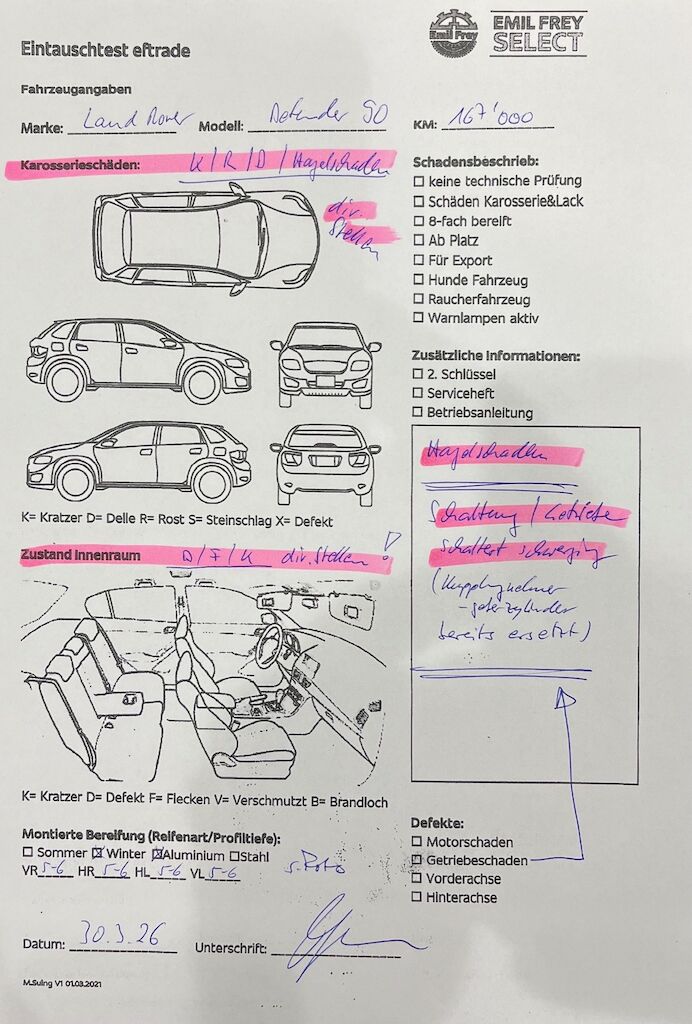 Emil Frey
EMIL FREY
SELECT
Eintauschtest eftrade
Fahrzeugangaben
Marke: Land Rover Modell: Defender 90 KM: 167'000
Karosserieschäden: K/R/D/Hagelschaden
div.
Stellen
Schadensbeschrieb:
keine technische Prüfung
Schäden Karosserie&Lack
8-fach bereift
Ab Platz
Für Export
Hunde Fahrzeug
Raucherfahrzeug
Warnlampen aktiv
Zusätzliche Informationen:
2. Schlüssel
Serviceheft
Betriebsanleitung
K= Kratzer D= Delle R= Rost S= Steinschlag X= Defekt
Hagelschaden
Schaltung / Getriebe
schaltet schwierig
(Kupplungnehmer
-geberzylinder
bereits ersetzt)
Zustand Innenraum D/F/K div. Stellen !
K= Kratzer D= Defekt F= Flecken V= Verschmutzt B= Brandloch
Montierte Bereifung (Reifenart/Profiltiefe):
Sommer Winter Aluminium Stahl
VR 5-6 HR 5-6 HL 5-6 VL 5-6
Defekte:
Motorschaden
Getriebeschaden
Vorderachse
Hinterachse
Datum: 30.3.26 Unterschrift:
M.Suing V1 01.03.2021